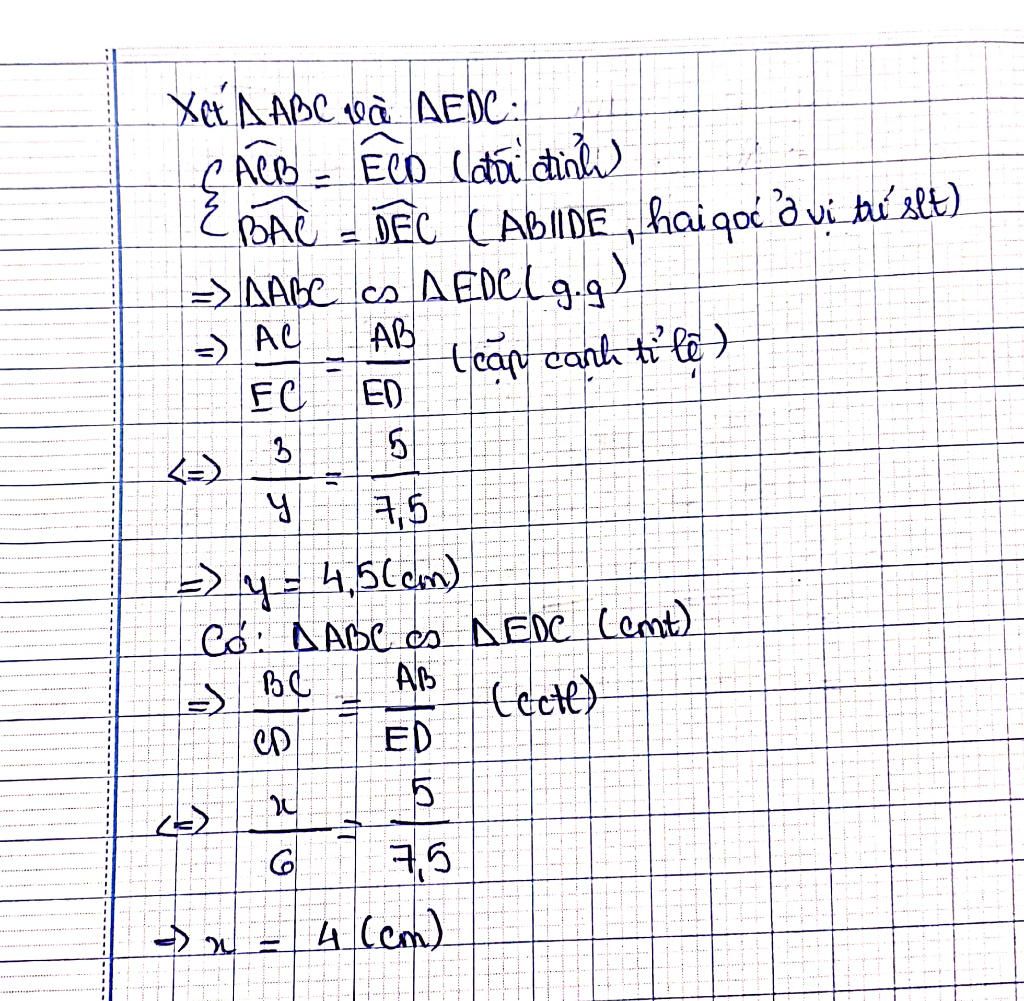 Xét ΔABC và ΔEDC:
{ ACB^ = ECD^ (đối đỉnh)
BAC^ = DEC^ (AB//DE, hai góc ở vị trí slt)
=> ΔABC ∽ ΔEDC (g.g)
=> AC/EC = AB/ED (cặp cạnh tỉ lệ)
<=> 3/y = 5/7,5
=> y = 4,5(cm)
Có: ΔABC ∽ ΔEDC (cmt)
=> BC/CD = AB/ED (cctl)
<=> x/6 = 5/7,5
=> x = 4 (cm)